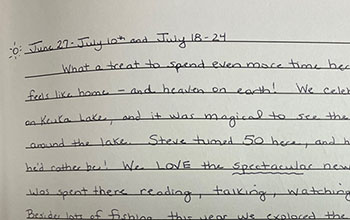 June 27 - July 10th and July 18-24
What a treat to spend even more time
feels like home - and heaven on earth! We
on Keuka Lake, and it was magical to see the
around the lake. Steve turned 50 here, and
he'd rather be! We LOVE the spectacular new
was spent there reading, talking, watching
Besides lots of fishing, this year we explored the